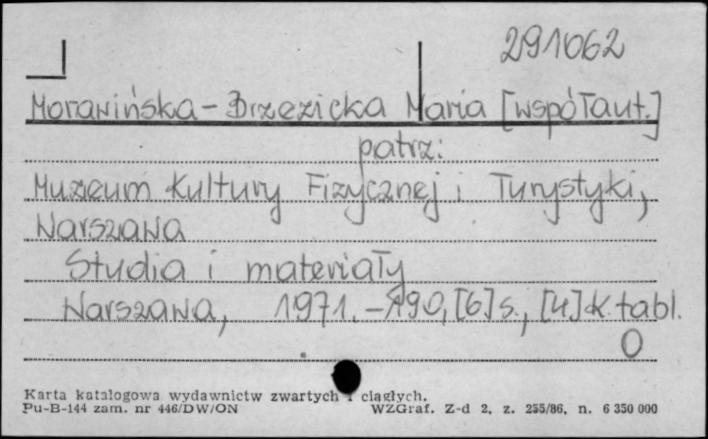 291062
Morawińska-Brzezicka Maria [współaut.]
patrz:
Muzeum Kultury Fizycznej i Turystyki,
Warszawa
Studia i materiały
Warszawa, 1971. - 190, [6] s., [4] k. tabl.
O
Karta katalogowa wydawnictw zwartych i ciągłych.
Pu-B-144 zam. nr 446/DW/ON WZGraf. Z-d 2, z. 255/86, n. 6 350 000